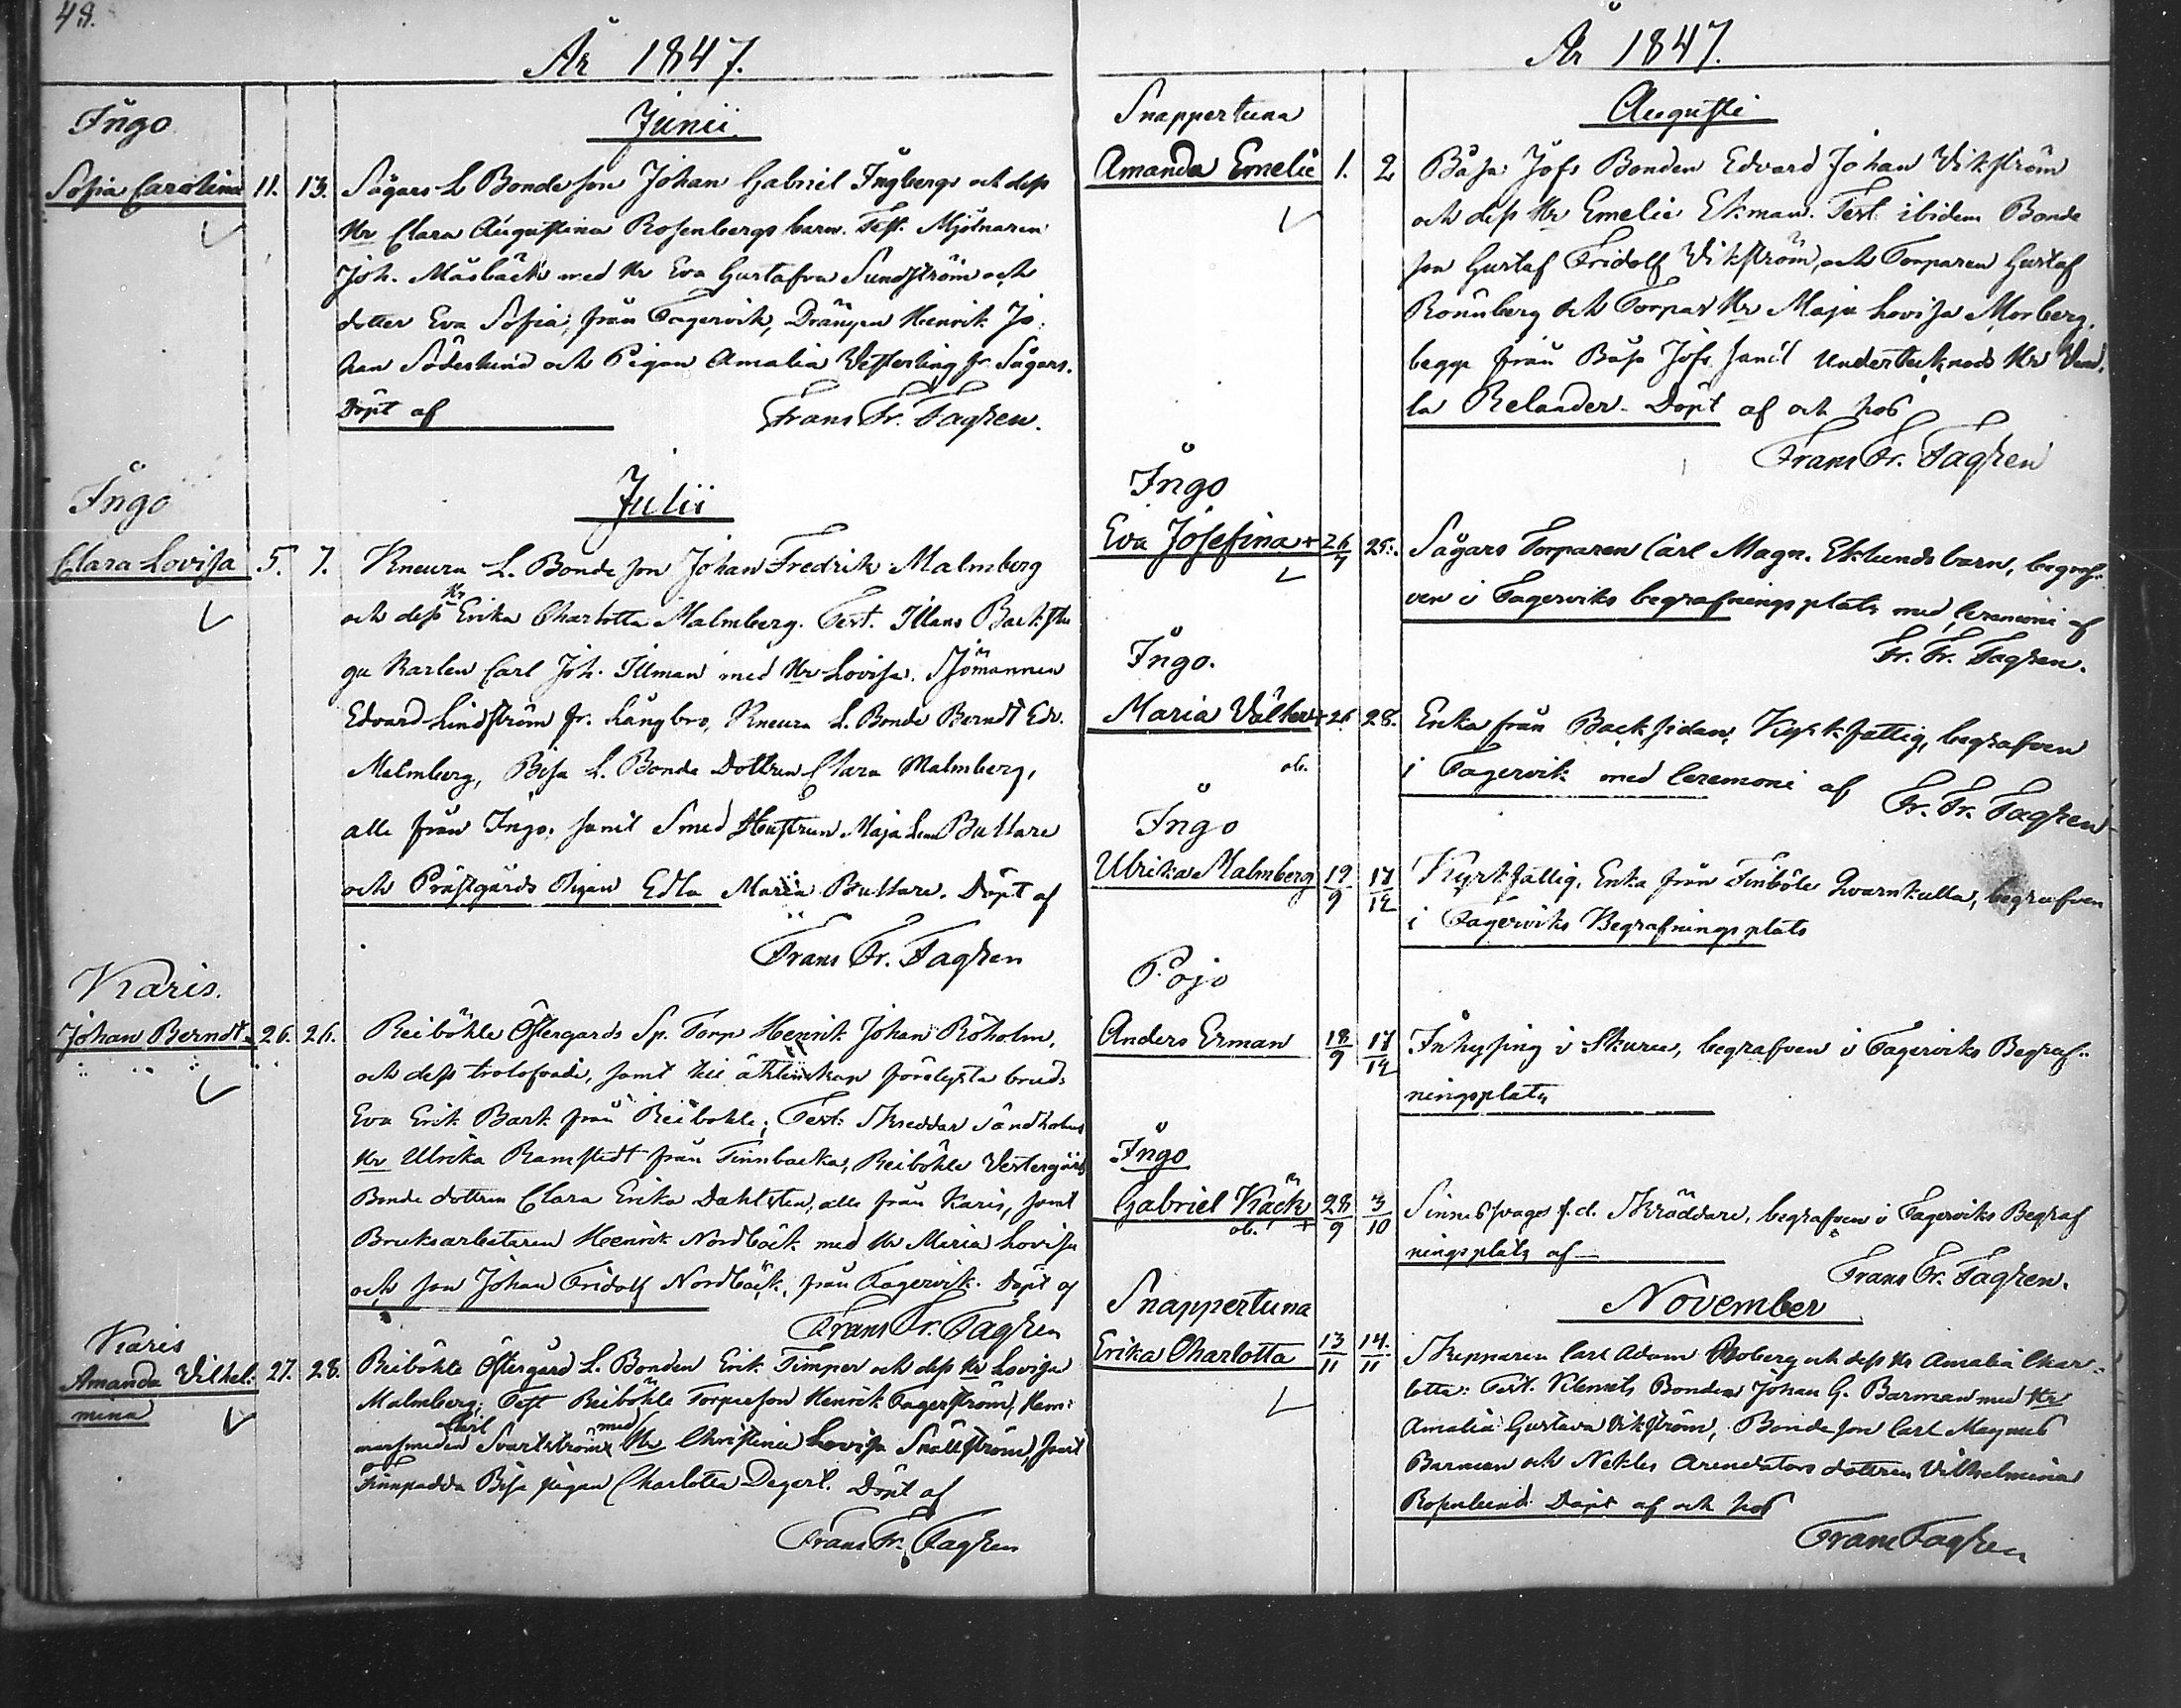 48.
År 1847.
Ingo
Junii.
Sofia Carolina 11. 13. Sågars L Bonde son Johan Gabriel Ingbergs och dess
Hr Clara Augustina Rosenbergs barn. Test. Mjölnaren
Joh. Måsbäck med Hr Eva Gustafva Sundström och
dotter Eva Sofia, från Fagervik, Drängen Henrik Jo:
han Söderlund och Pigan Amalia Vesterling fr. Sågars.
Döpt af Frans Fr. Fagrén.
Julii
Ingo
Clara Lovisa 5. 7. Kneura L. Bonde son Johan Fredrik Malmberg
och dess Hr Erika Charlotta Malmberg. Test. Illans Backstu
gu Karlen Carl Joh. Illman med Hr Lovisa. Sjömannen
Edvard Lindström fr. Långbro, Kneura L. Bonde Berndt Edv.
Malmberg, Bisa L. Bonde Dottren Clara Malmberg,
alle från Ingo, samt Smed Hustrun Maja Lena Bullare
och Prästgårds Pigan Edla Maria Bullare. Döpt af
Frans Fr. Fagrén
Karis.
Johan Berndt. 26. 26. Reiböhle Östergårds Sp. Torp Henrik Johan Röholm,
och dess trolofvade, samt till äktenskap förelysta brud
Eva Erik Bark från Reiböhle; Test: Skreddar Sandholms
Hr Ulrika Ramstedt från Finnbacka, Reiböhle Vestergårds
Bonde dottren Clara Erika Dahlsten, alle från Karis, samt
Bruksarbetaren Henrik Nordbäck med Hr Maria Lovisa
och son Johan Fridolf Nordbäck, från Fagervik. Döpt af
Frans Fr. Fagrén
Karis
Amanda Vilhel: 27. 28. Reiböhle Östergård L. Bonden Erik Timper och dess Hr Lovisa
mina Malmberg; Test Reiböhle Torpareson Henrik Fagerström, Ham:
marsmeden Carl Svartström med Hr Christina Lovisa Snällström, samt
Finnpadda Bisa pigan Charlotta Degert. Döpt af
Frans Fr. Fagrén
År 1847.
Snappertuna
Augusti
Amanda Emelie 1. 2 Båsa Jofs Bonden Edvard Johan Vikström
och dess Hr Emelie Ekman. Test. ibidem Bonde
son Gustaf Fridolf Vikström, och Torparen Gustaf
Rönnberg och Torpar Hr Maja Lovisa Morberg.
begge från Båsa Jofs samt Undertecknads Hr Vend.
la Relander. Döpt af och hos
Frans Fr. Fagrén
Ingo
Eva Josefina + 26/7 25. Sågars Torparen Carl Magn. Eklunds barn, begraf-
ven i Fagerviks begrafningsplats med Ceremoni af
Fr. Fr. Fagrén.
Ingo.
Maria Välker + 26. 28. Enka från Backsidan, Kyrkfattig, begrafven
ob. i Fagervik med Ceremoni af Fr. Fr. Fagrén
Ingo
Ulrika Malmberg 19/9 17/12 Kyrkfattig, Enka från Finböle Qvarnkulla, begrafven
i Fagerviks Begrafningsplats
Pojo
Anders Erman 18/9 17/12 Inhysing i Skuru, begrafven i Fagerviks Begraf-
ningsplats
Ingo
Gabriel Käck 28/9 3/10 Sinnessvage f.d. Skräddare, begrafven i Fagerviks Begraf
ob. + ningsplats af
Frans Fr. Fagrén.
November
Snappertuna
Erika Charlotta 13/11 14./11 Skepparen Carl Adam Broberg och dess Hr Amalia Char-
lotta: Test. Klemets Bonden Johan G. Barman med Hr
Amalia Gustava Vikström, Bonde son Carl Magnus
Barman och Nekles Arendators dottren Vilhelmina
Rosenlund. Döpt af och hos
Frans Fagrén